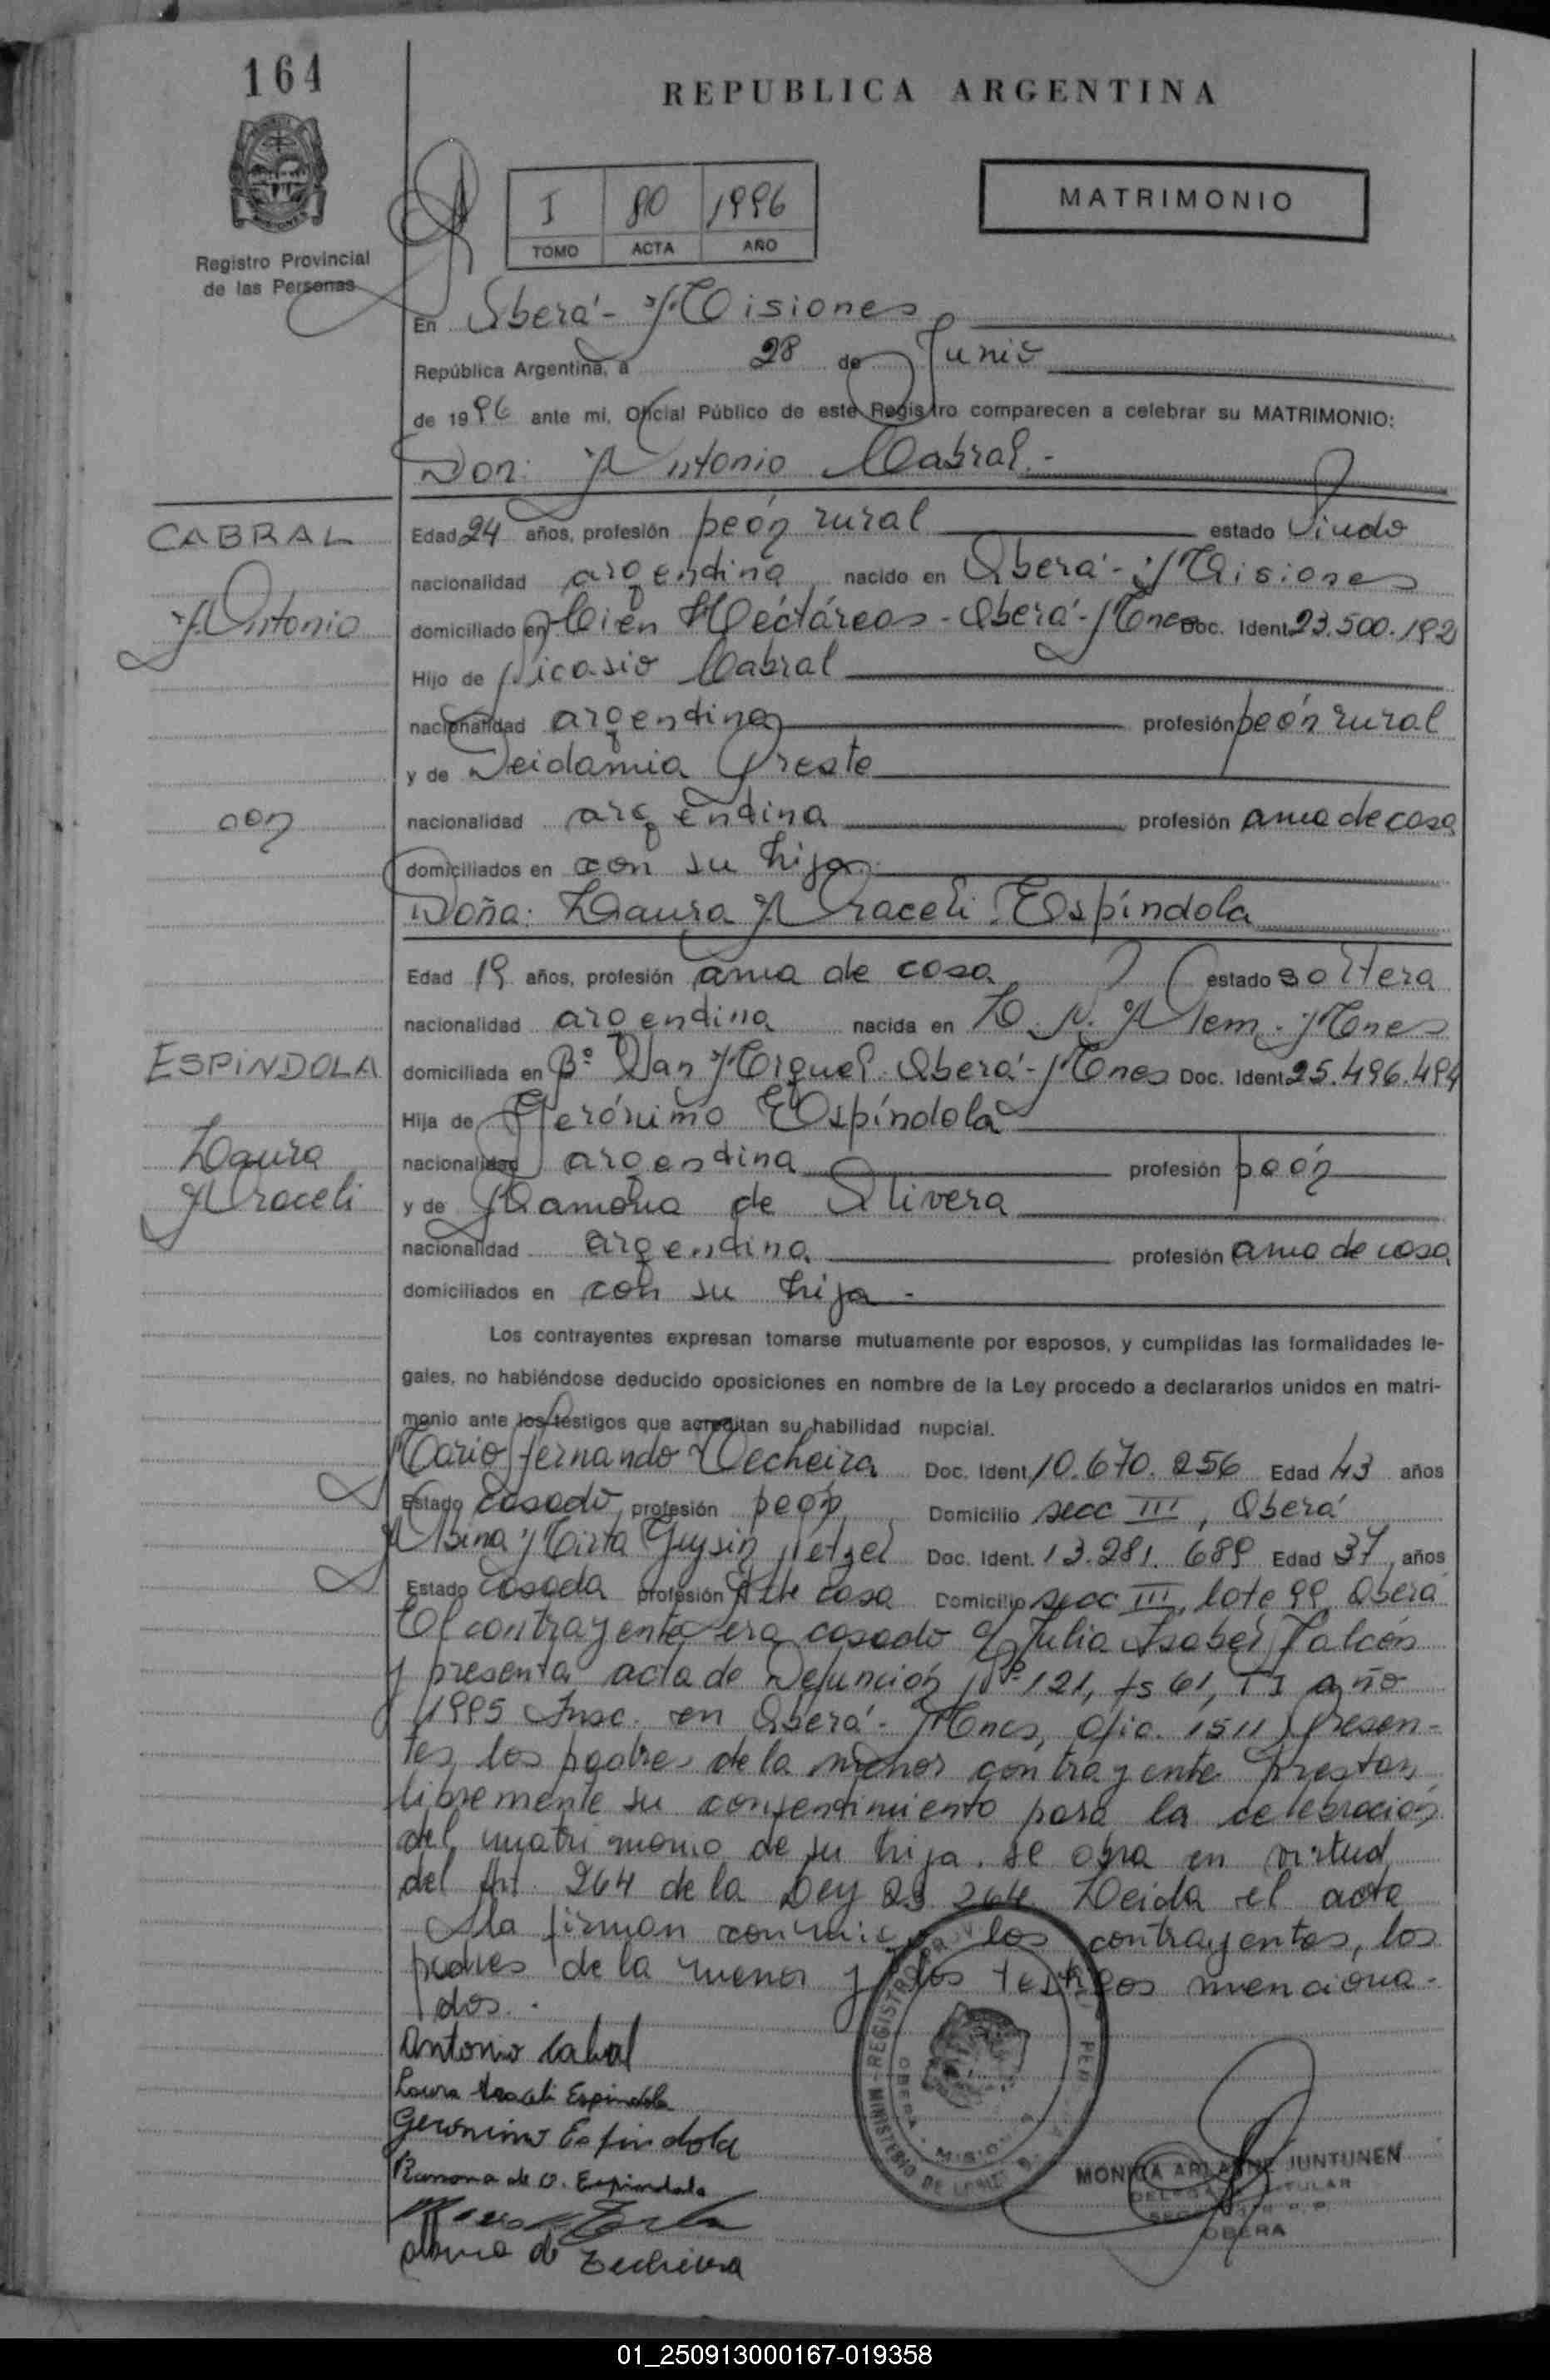 164
REPUBLICA ARGENTINA
Registro Provincial
de las Personas
I 80 1996
TOMO ACTA AÑO
MATRIMONIO
En Oberá - Misiones
República Argentina, a 28 de Junio
de 1996 ante mi, Oficial Público de este Registro comparecen a celebrar su MATRIMONIO:
Don: Antonio Cabral.-
CABRAL
Antonio
con
ESPINDOLA
Laura
Araceli
Edad 24 años, profesión peón rural estado Viudo
nacionalidad argentina nacido en Oberá - Misiones
domiciliado en Cien Hectáreas - Oberá - Mnes Doc. Ident. 23.500.192
Hijo de Nicasio Cabral
nacionalidad argentina profesión peón rural
y de Deidamia Preste
nacionalidad argentina profesión ama de casa
domiciliados en con su hijo.
Doña: Laura Araceli Espíndola
Edad 19 años, profesión ama de casa estado soltera
nacionalidad argentina nacida en L. N. Alem. Mnes
domiciliada en Bº San Miguel. Oberá - Mnes Doc. Ident. 25.496.494
Hija de Gerónimo Espíndola
nacionalidad argentina profesión peón
y de Ramona de Olivera
nacionalidad argentina profesión ama de casa
domiciliados en con su hija -
Los contrayentes expresan tomarse mutuamente por esposos, y cumplidas las formalidades le-
gales, no habiéndose deducido oposiciones en nombre de la Ley procedo a declararlos unidos en matri-
monio ante los testigos que acreditan su habilidad nupcial.
Mario Fernando Decheira Doc. Ident. 10.670.256 Edad 43 años
Estado casado profesión peón Domicilio secc III, Oberá
Albina Mirta Guysin Netzel Doc. Ident. 13.281.689 Edad 37 años
Estado casada profesión A de casa Domicilio secc III, lote 99, Oberá
El contrayente era casado c/ Julia Isabel Falcón
y presenta acta de Defunción Nº 121, fs 61, TI año
1995 Insc. en Oberá - Mnes, Ofic. 1511) Presen-
tes los padres de la menor contrayente prestan
libremente su consentimiento para la celebración
del matrimonio de su hija. se obra en virtud
del Art. 264 de la Ley 23.264. Leída el acta
la firman conmigo los contrayentes, los
padres de la menor y los testigos menciona-
dos.
Antonio Cabral
Laura Araceli Espindola
Geronimo Espindola
Ramona de O. Espindola
Albina de Decheira
MINISTERIO DE REGISTRO
OBERA - MISIO
MONICA JUNTUNEN
TITULAR
OBERA
01_250913000167-019358